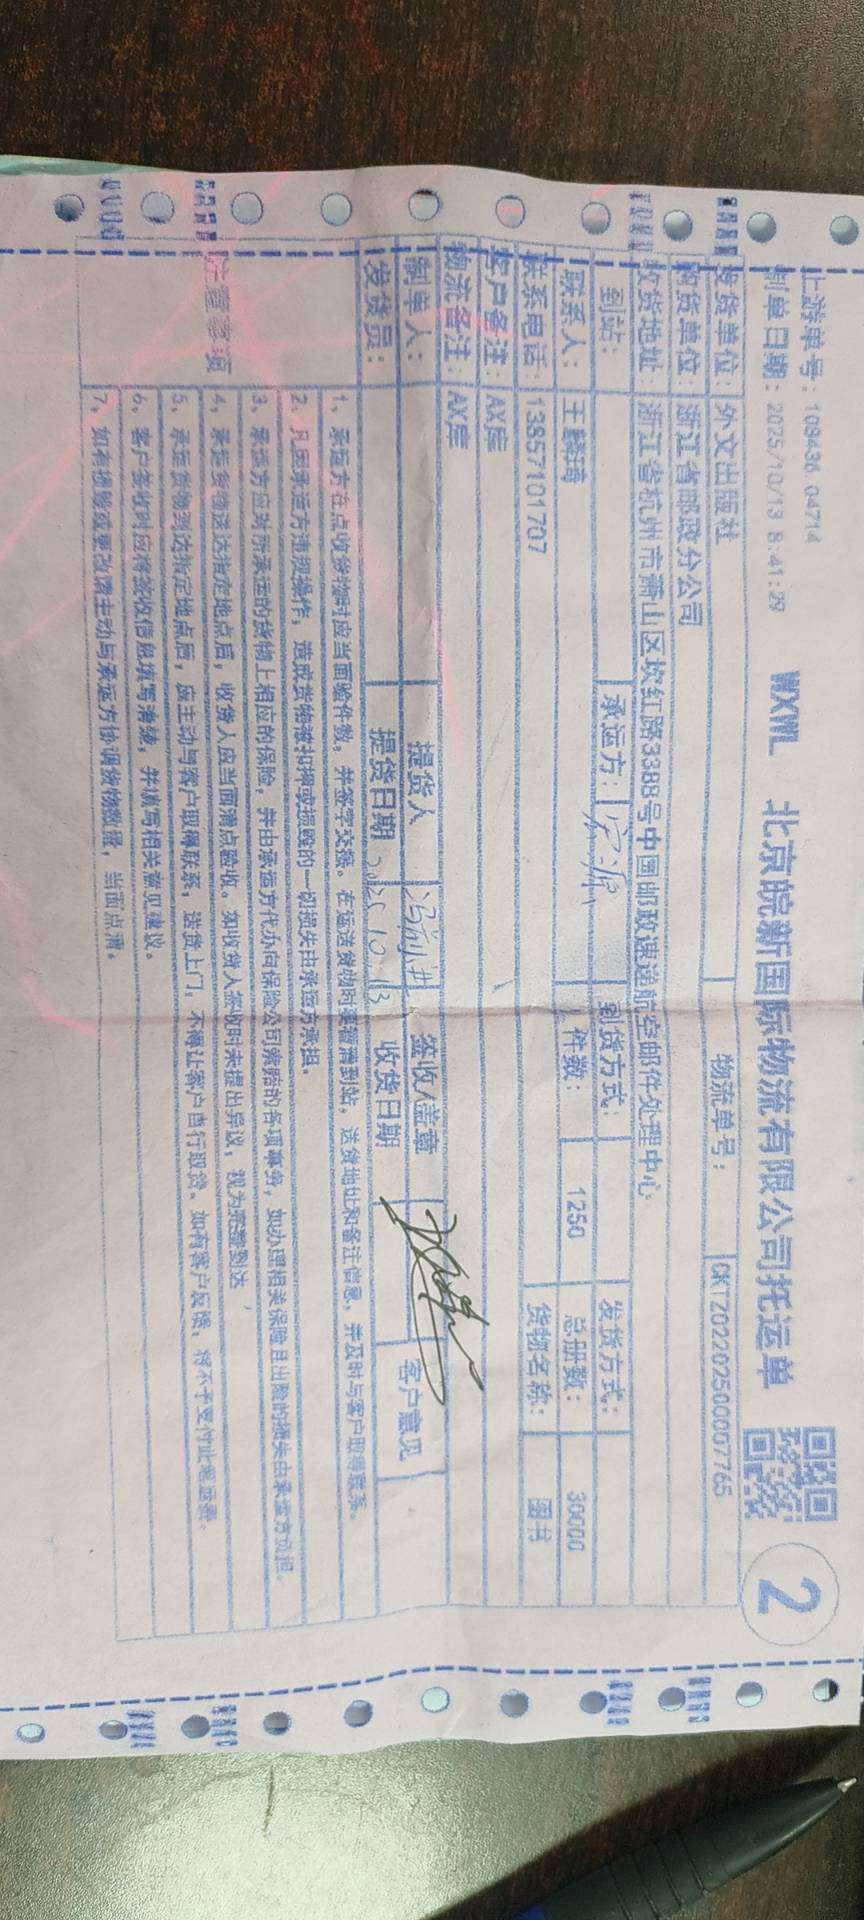 WXWL 北京皖新国际物流有限公司托运单
2
上游单号：109436 04714
制单日期：2025/10/13 8:41:29
发货单位：外文出版社 物流单号：CKTZ02202500007765
收货单位：浙江省邮政分公司
收货地址：浙江省杭州市萧山区坎红路3388号中国邮政速递航空邮件处理中心
到站： 承运方： 到货方式： 发货方式：
联系人：王麟琦 件数：1250 总册数：30000
联系电话：13857101707 货物名称：图书
客户备注：AX库
物流备注：AX库
制单人： 提货人 签收/盖章 客户意见
发货员： 提货日期 2025.10.13 收货日期
注意事项
1、承运方在点收货物时应当面验件数，并签字交接。在运送货物时要看清到站，送货地址和备注信息，并及时与客户取得联系。
2、凡因承运方违规操作，造成货物被扣押或损毁的一切损失由承运方承担。
3、承运方应对所承运的货物上相应的保险，并由承运方代办向保险公司索赔的各项事务，如办理相关保险且出险的损失由承运方负担。
4、承运货物送达指定地点后，收货人应当面清点验收。如收货人签收时未提出异议，视为完整到达
5、承运货物到达指定地点后，应主动与客户取得联系，送货上门，不得让客户自行取货。如有客户反馈，将不予支付此笔运费。
6、客户签收时应将签收信息填写清楚，并填写相关意见建议。
7、如有损毁或更改请主动与承运方协调货物数量，当面点清。